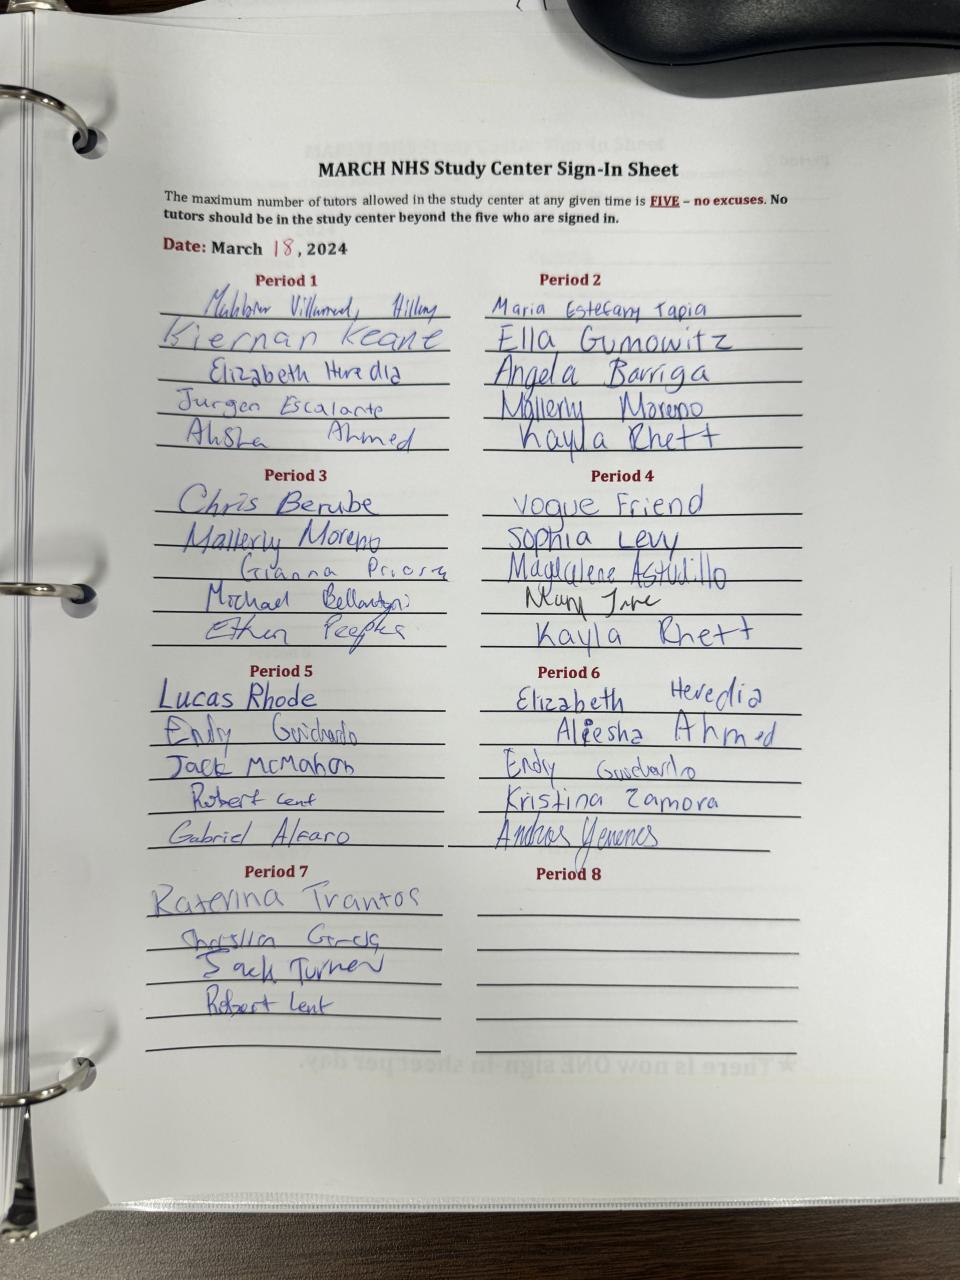 MARCH NHS Study Center Sign-In Sheet
The maximum number of tutors allowed in the study center at any given time is FIVE – no excuses. No
tutors should be in the study center beyond the five who are signed in.
Date: March 18, 2024
Period 1
Villarreal, Hillary
Kiernan Keane
Elizabeth Heredia
Jurgen Escalante
Alisha Ahmed
Period 2
Maria Estefany Tapia
Ella Gumowitz
Angela Barriga
Mallerly Moreno
Kayla Rhett
Period 3
Chris Berube
Mallerly Moreno
Gianna Priora
Michael
Ethan Peeples
Period 4
Vogue Friend
Sophia Levy
Magdalene Astudillo
Kayla Rhett
Period 5
Lucas Rhode
Endy Guichardo
Jack McMahon
Robert Lent
Gabriel Alfaro
Period 6
Elizabeth Heredia
Aleesha Ahmed
Endy Guichardo
Kristina Zamora
Period 7
Katerina Trantos
Jack Turner
Robert Lent
Period 8